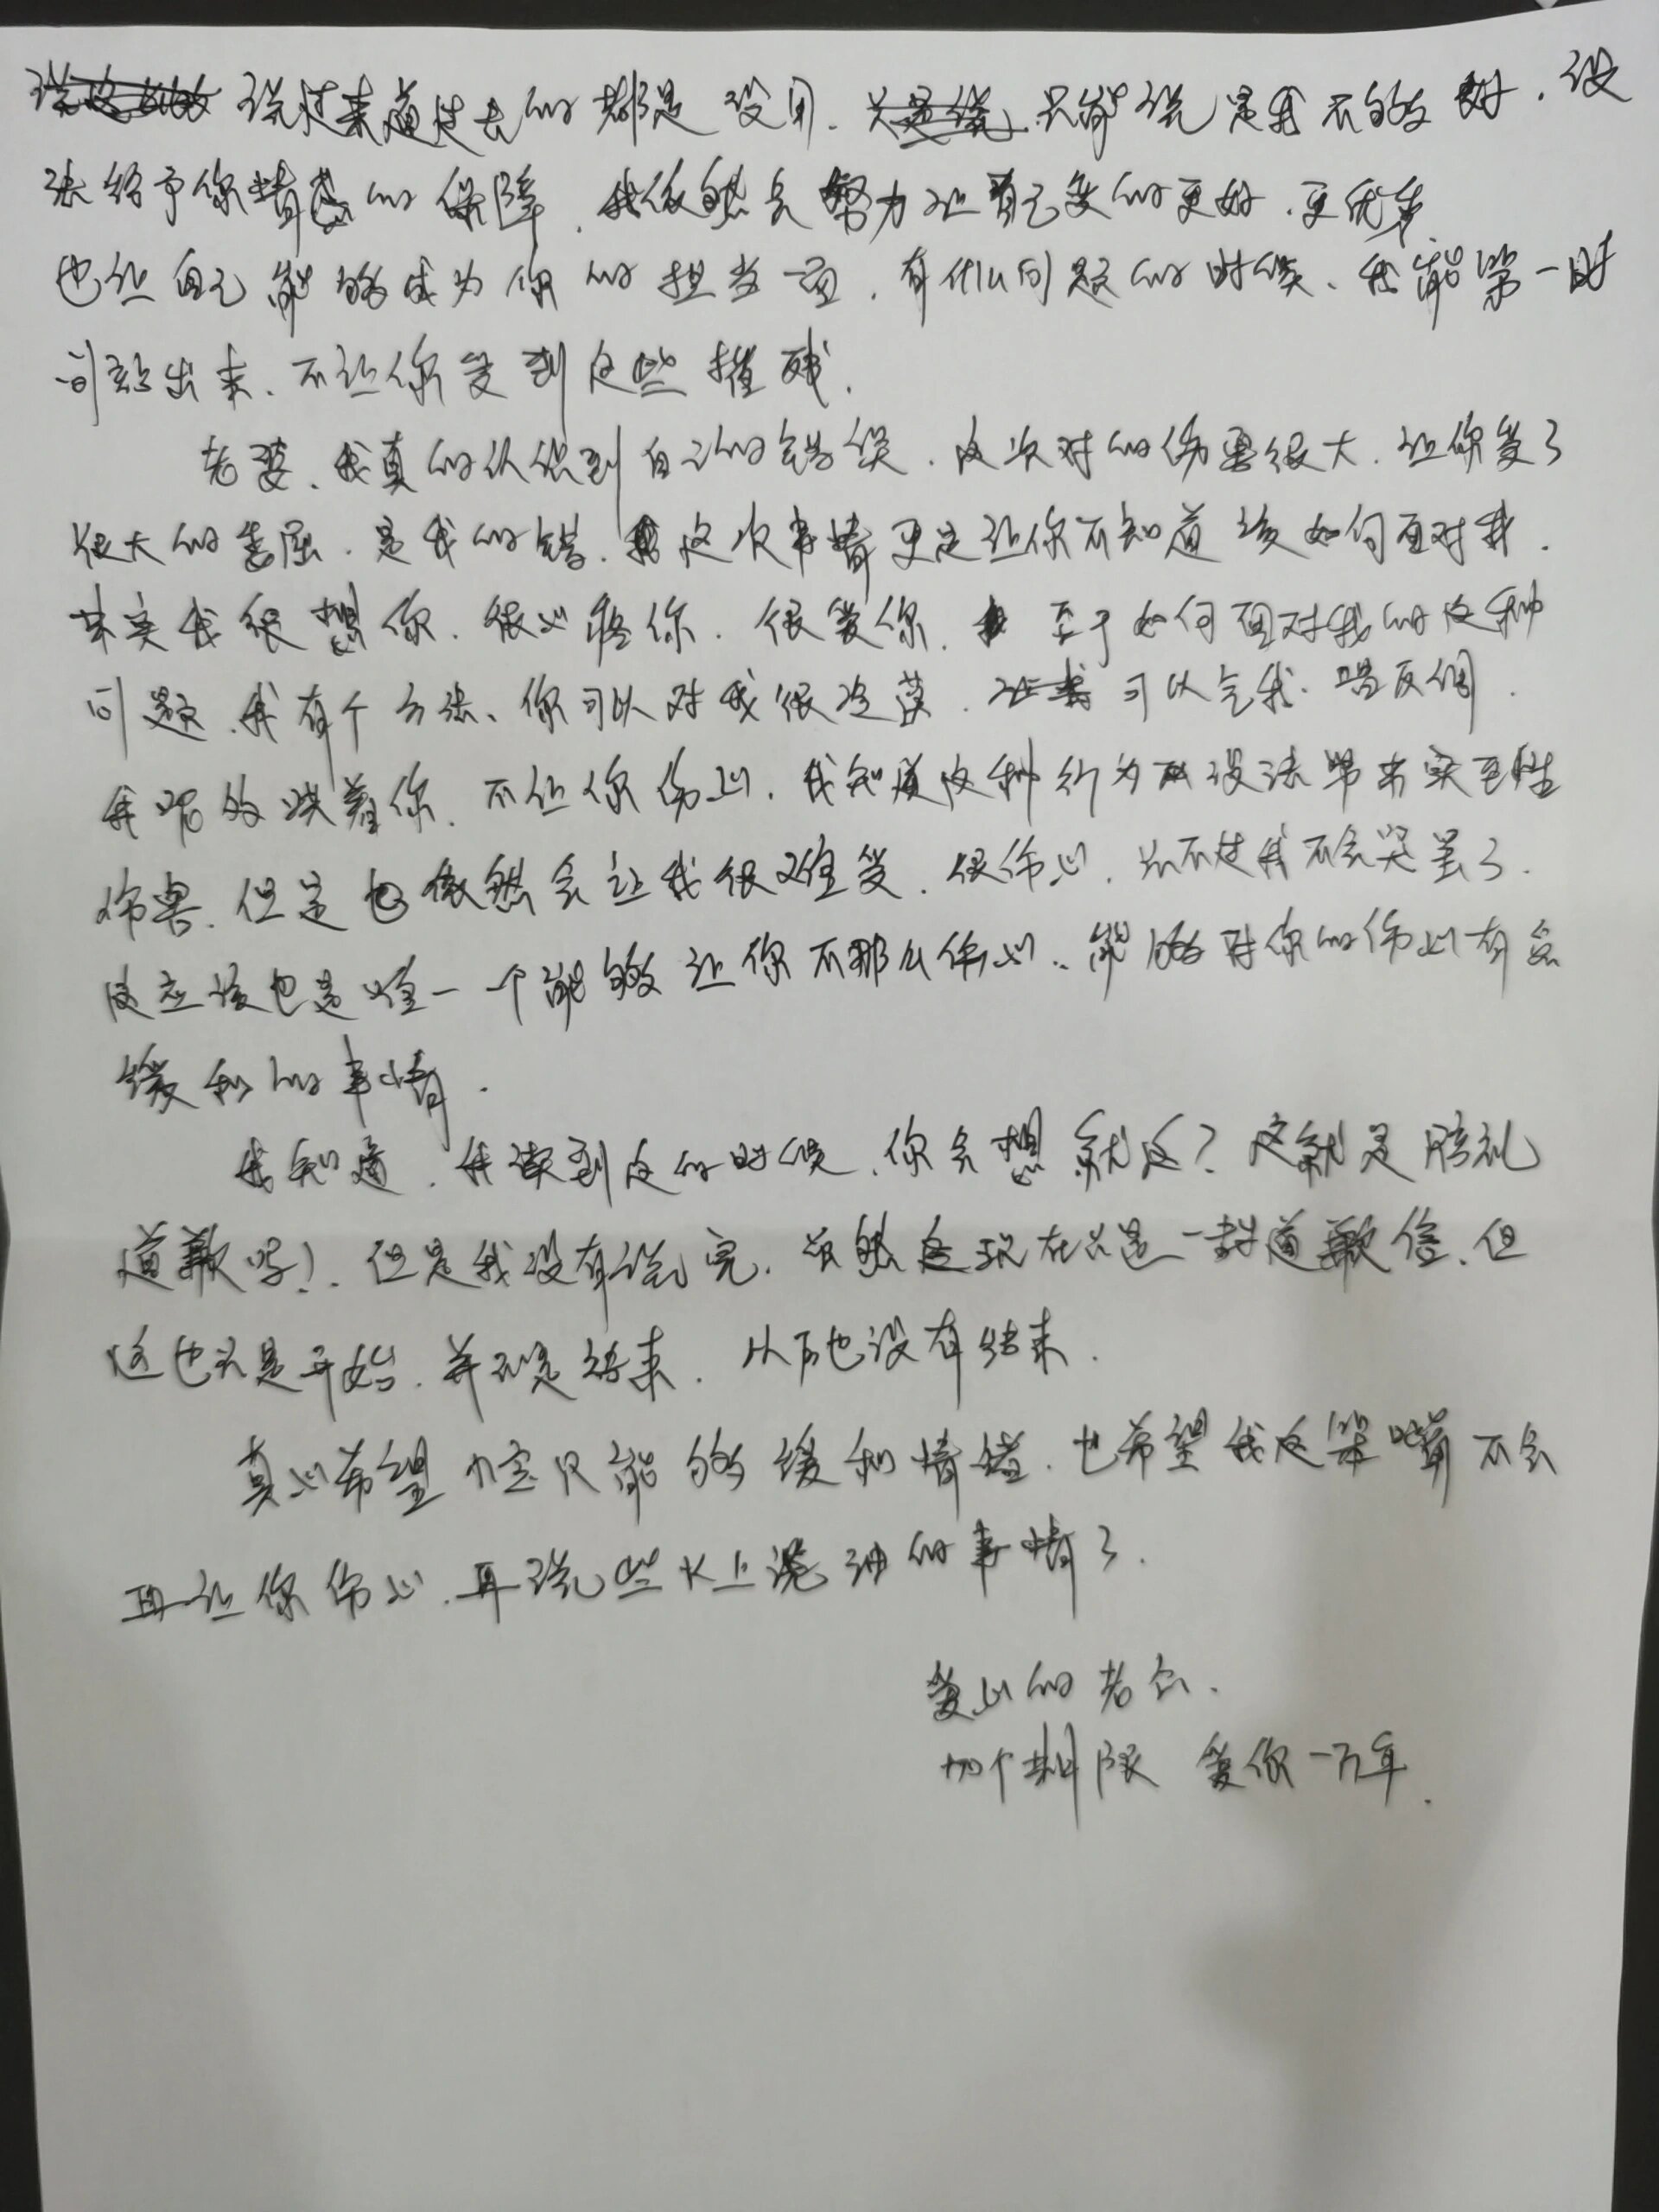 说过来道过去的都是没用.只能说是我不够好.没
法给予你情感的保障.我依然会努力让自己变的更好.更优秀
也让自己能够成为你的担当一面.有什么问题的时候、我能第一时
间站出来、不让你受到这些摧残.
老婆、我真的认识到自己的错误.这次对的伤害很大.让你受了
很大的委屈.是我的错.这次事情更是让你不知道该如何面对我.
其实我很想你.很心疼你.很爱你.至于如何面对我的这种
问题.我有个方法、你可以对我很冷漠.可以气我.唱反调.
我呢的哄着你.不让你伤心.我知道这种行为没法带来实质性
伤害.但是也依然会让我很难受.很伤心.只不过我不会哭罢了.
这应该也是唯一一个能够让你不那么伤心.能够对你的伤心有点
缓和的事情.
我知道.我读到这的时候.你会想就这?这就是赔礼
道歉吗!.但是我没有说完.虽然现在只是一封道歉信.但
这也只是开始.并不是结束.以后也没有结束.
真心希望能够缓和情绪.也希望我这笨嘴不会
再让你伤心.再说些火上浇油的事情了.
爱心的老公.
加个期限 爱你一万年.